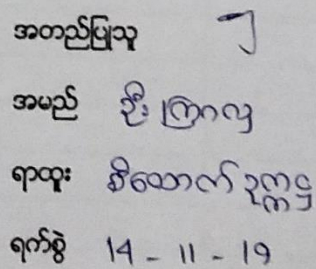 အတည်ပြုသူ
အမည် ဦးကြာလှ
ရာထူး စီထောက် ဥက္ကဋ္ဌ
ရက်စွဲ 14 - 11 - 19